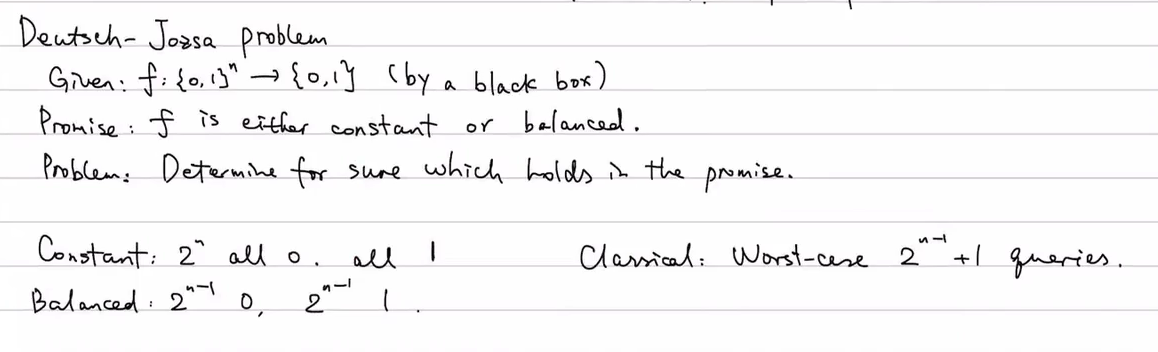 Deutsch-Jozsa problem
Given: f: {0,1}ⁿ → {0,1} (by a black box)
Promise: f is either constant or balanced.
Problem: Determine for sure which holds in the promise.
Constant: 2ⁿ all 0. all 1
Classical: Worst-case 2ⁿ⁻¹+1 queries.
Balanced: 2ⁿ⁻¹ 0, 2ⁿ⁻¹ 1.